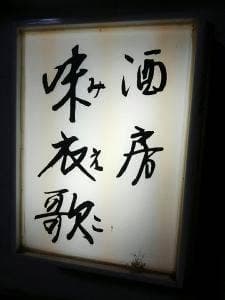 酒房
味み衣え歌こ